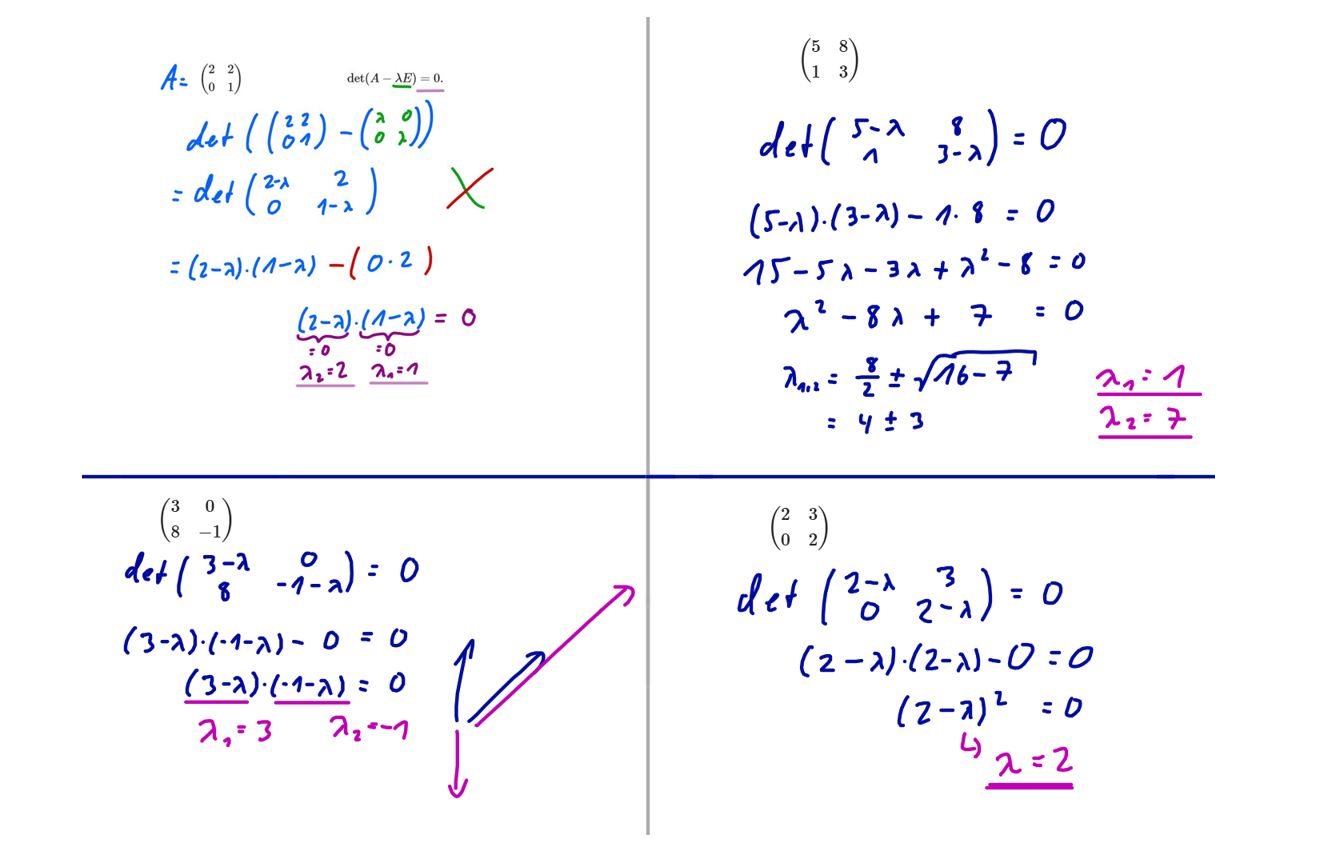 A = (2 2
0 1) det(A − λE) = 0.
det ( (2 2
0 1) − (λ 0
0 λ) )
= det (2-λ 2
0 1-λ)
= (2-λ)·(1-λ) − (0·2)
(2-λ)·(1-λ) = 0
=0 =0
λ₂=2 λ₁=1
(5 8
1 3)
det (5-λ 8
1 3-λ) = 0
(5-λ)·(3-λ) − 1·8 = 0
15 − 5λ − 3λ + λ² − 8 = 0
λ² − 8λ + 7 = 0
λ₁,₂ = 8/2 ± √(16 − 7)
= 4 ± 3
λ₁ = 1
λ₂ = 7
(3 0
8 −1)
det (3-λ 0
8 -1-λ) = 0
(3-λ)·(-1-λ) − 0 = 0
(3-λ)·(-1-λ) = 0
λ₁ = 3 λ₂ = -1
(2 3
0 2)
det (2-λ 3
0 2-λ) = 0
(2-λ)·(2-λ) − 0 = 0
(2-λ)² = 0
↳ λ = 2